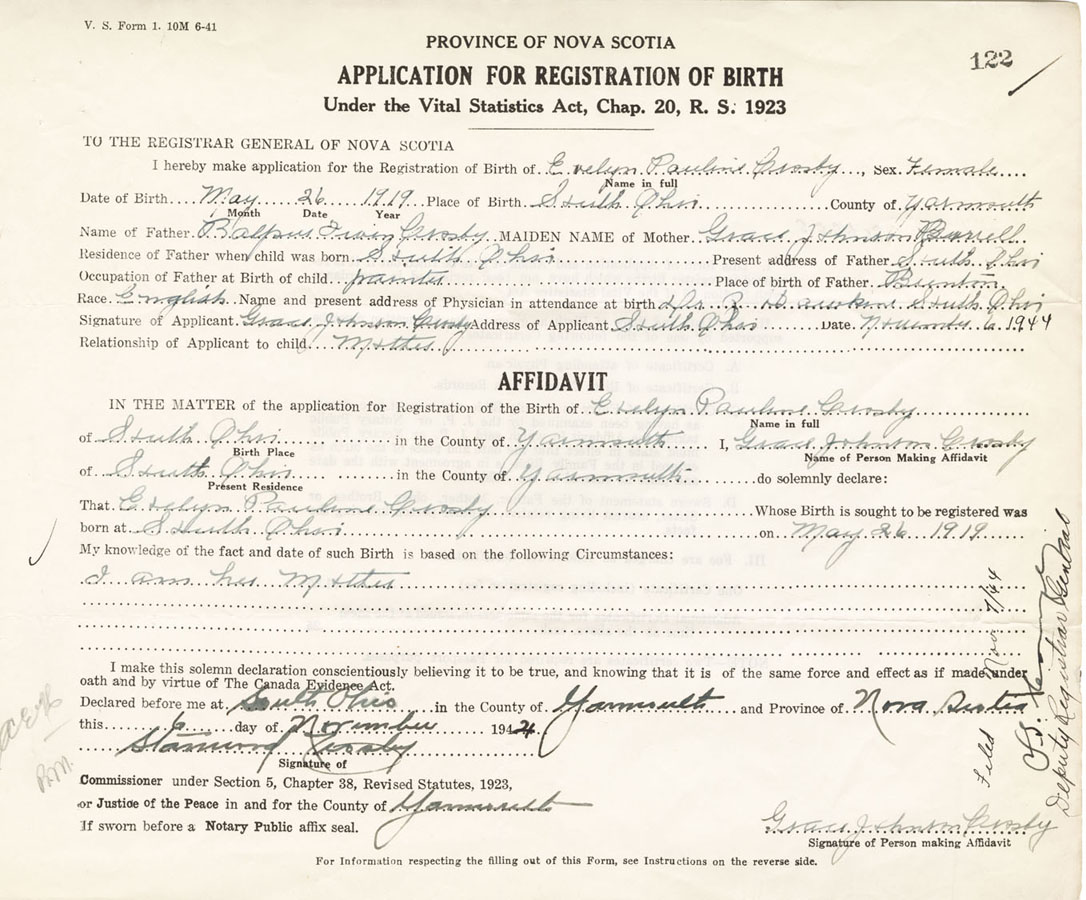 V. S. Form 1. 10M 6-41
PROVINCE OF NOVA SCOTIA
122
APPLICATION FOR REGISTRATION OF BIRTH
Under the Vital Statistics Act, Chap. 20, R. S. 1923
TO THE REGISTRAR GENERAL OF NOVA SCOTIA
I hereby make application for the Registration of Birth of Evelyn Pauline Crosby, Sex Female
Name in full
Date of Birth May 26 1919 Place of Birth South Ohio County of Yarmouth
Month Date Year
Name of Father Crosby MAIDEN NAME of Mother Grace Johnson Burrell
Residence of Father when child was born South Ohio Present address of Father South Ohio
Occupation of Father at Birth of child painter Place of birth of Father
Race English Name and present address of Physician in attendance at birth South Ohio
Signature of Applicant Grace Johnson Crosby Address of Applicant South Ohio Date November 6, 1944
Relationship of Applicant to child Mother
AFFIDAVIT
IN THE MATTER of the application for Registration of the Birth of Evelyn Pauline Crosby
Name in full
of South Ohio in the County of Yarmouth I, Grace Johnson Crosby
Birth Place Name of Person Making Affidavit
of South Ohio in the County of Yarmouth do solemnly declare:
Present Residence
That Evelyn Pauline Crosby Whose Birth is sought to be registered was
born at South Ohio on May 26 1919
My knowledge of the fact and date of such Birth is based on the following Circumstances:
I am her Mother
I make this solemn declaration conscientiously believing it to be true, and knowing that it is of the same force and effect as if made under
oath and by virtue of The Canada Evidence Act.
Declared before me at South Ohio in the County of Yarmouth and Province of Nova Scotia
this 6 day of November 1944
Crosby
Signature of
Commissioner under Section 5, Chapter 38, Revised Statutes, 1923,
or Justice of the Peace in and for the County of Yarmouth
If sworn before a Notary Public affix seal.
Grace Johnson Crosby
Signature of Person making Affidavit
For Information respecting the filling out of this Form, see Instructions on the reverse side.
Filed Nov 7/44
Deputy Registrar General